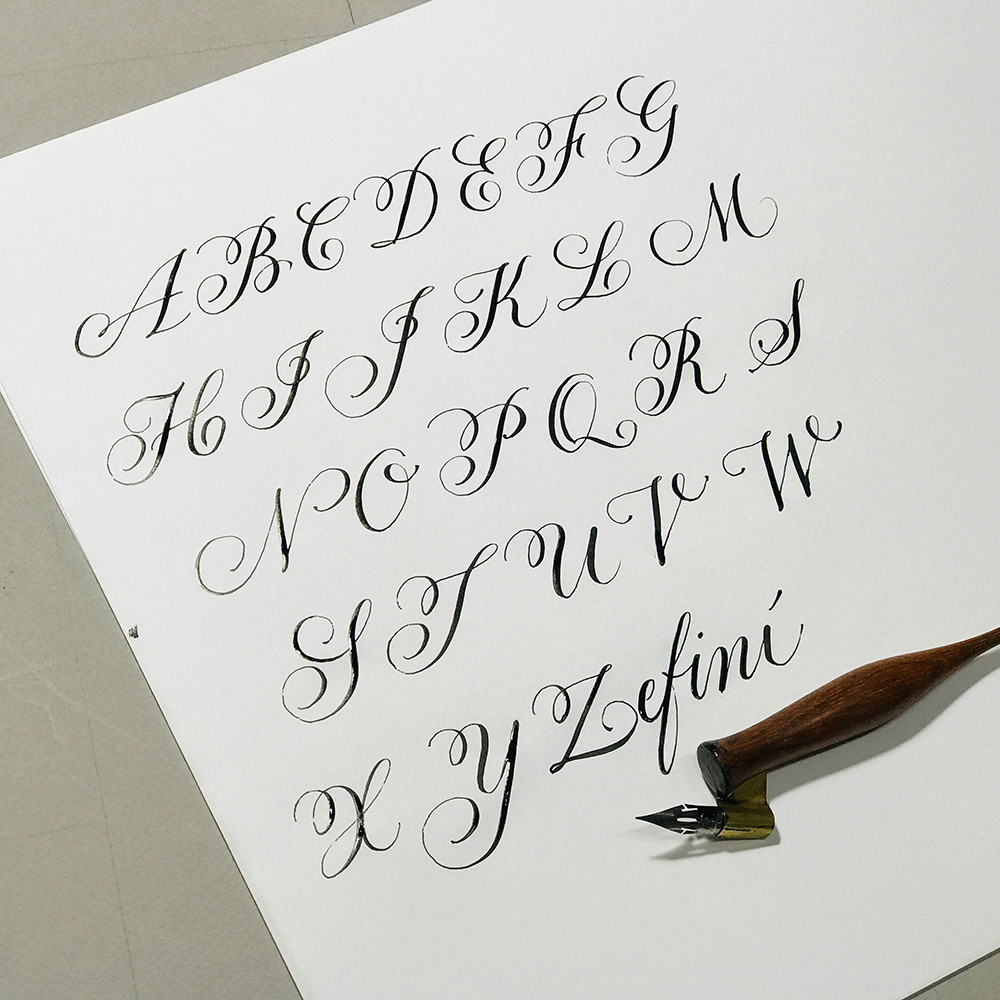 A B C D E F G
H I J K L M
N O P Q R S
S T U V W
X Y Zefiní